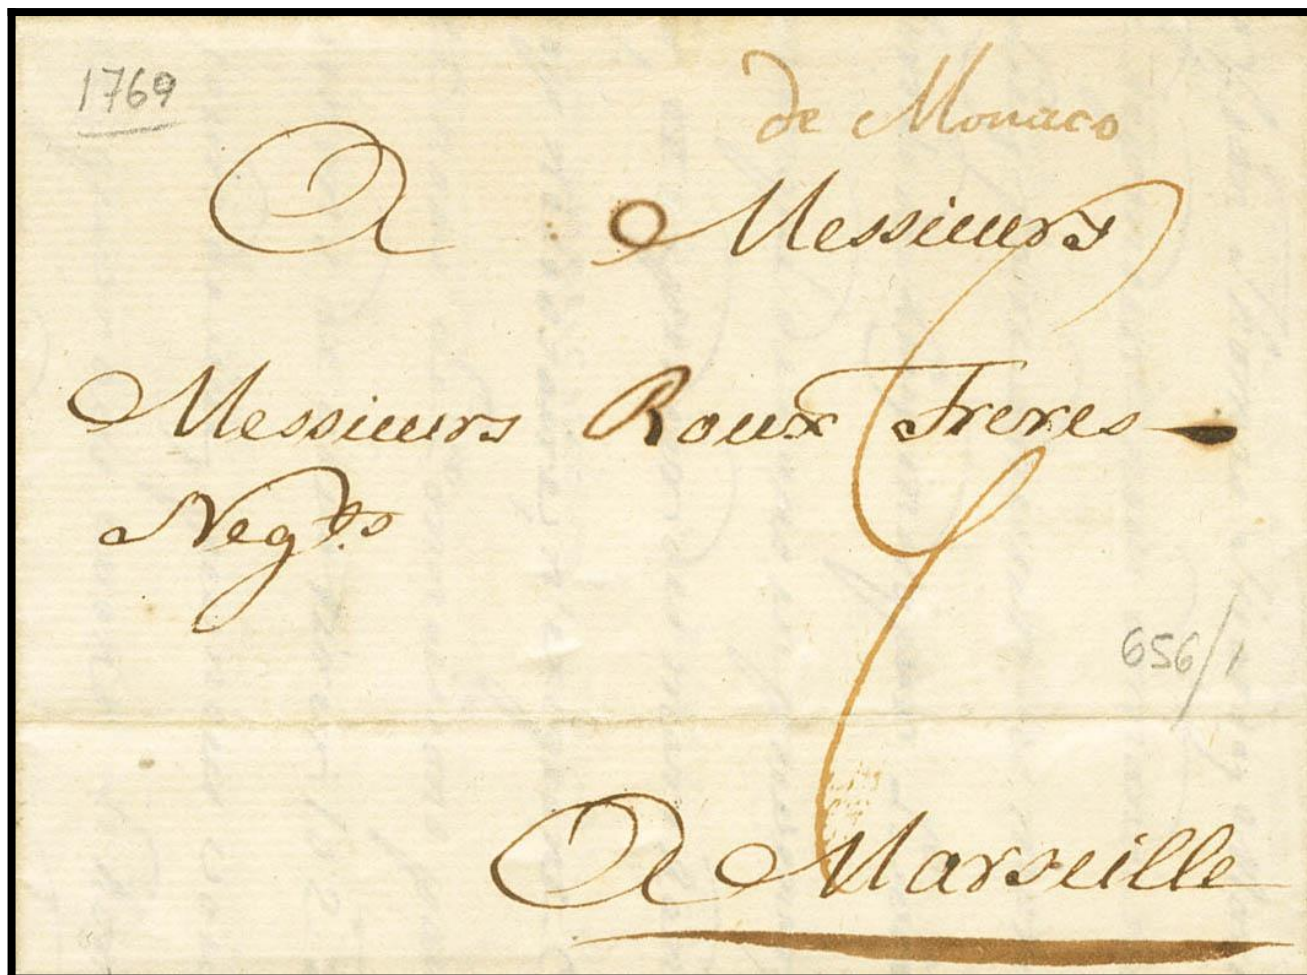 1769
de Monaco
A Messieurs
Messieurs Roux Freres
Negts
656/1
A Marseille